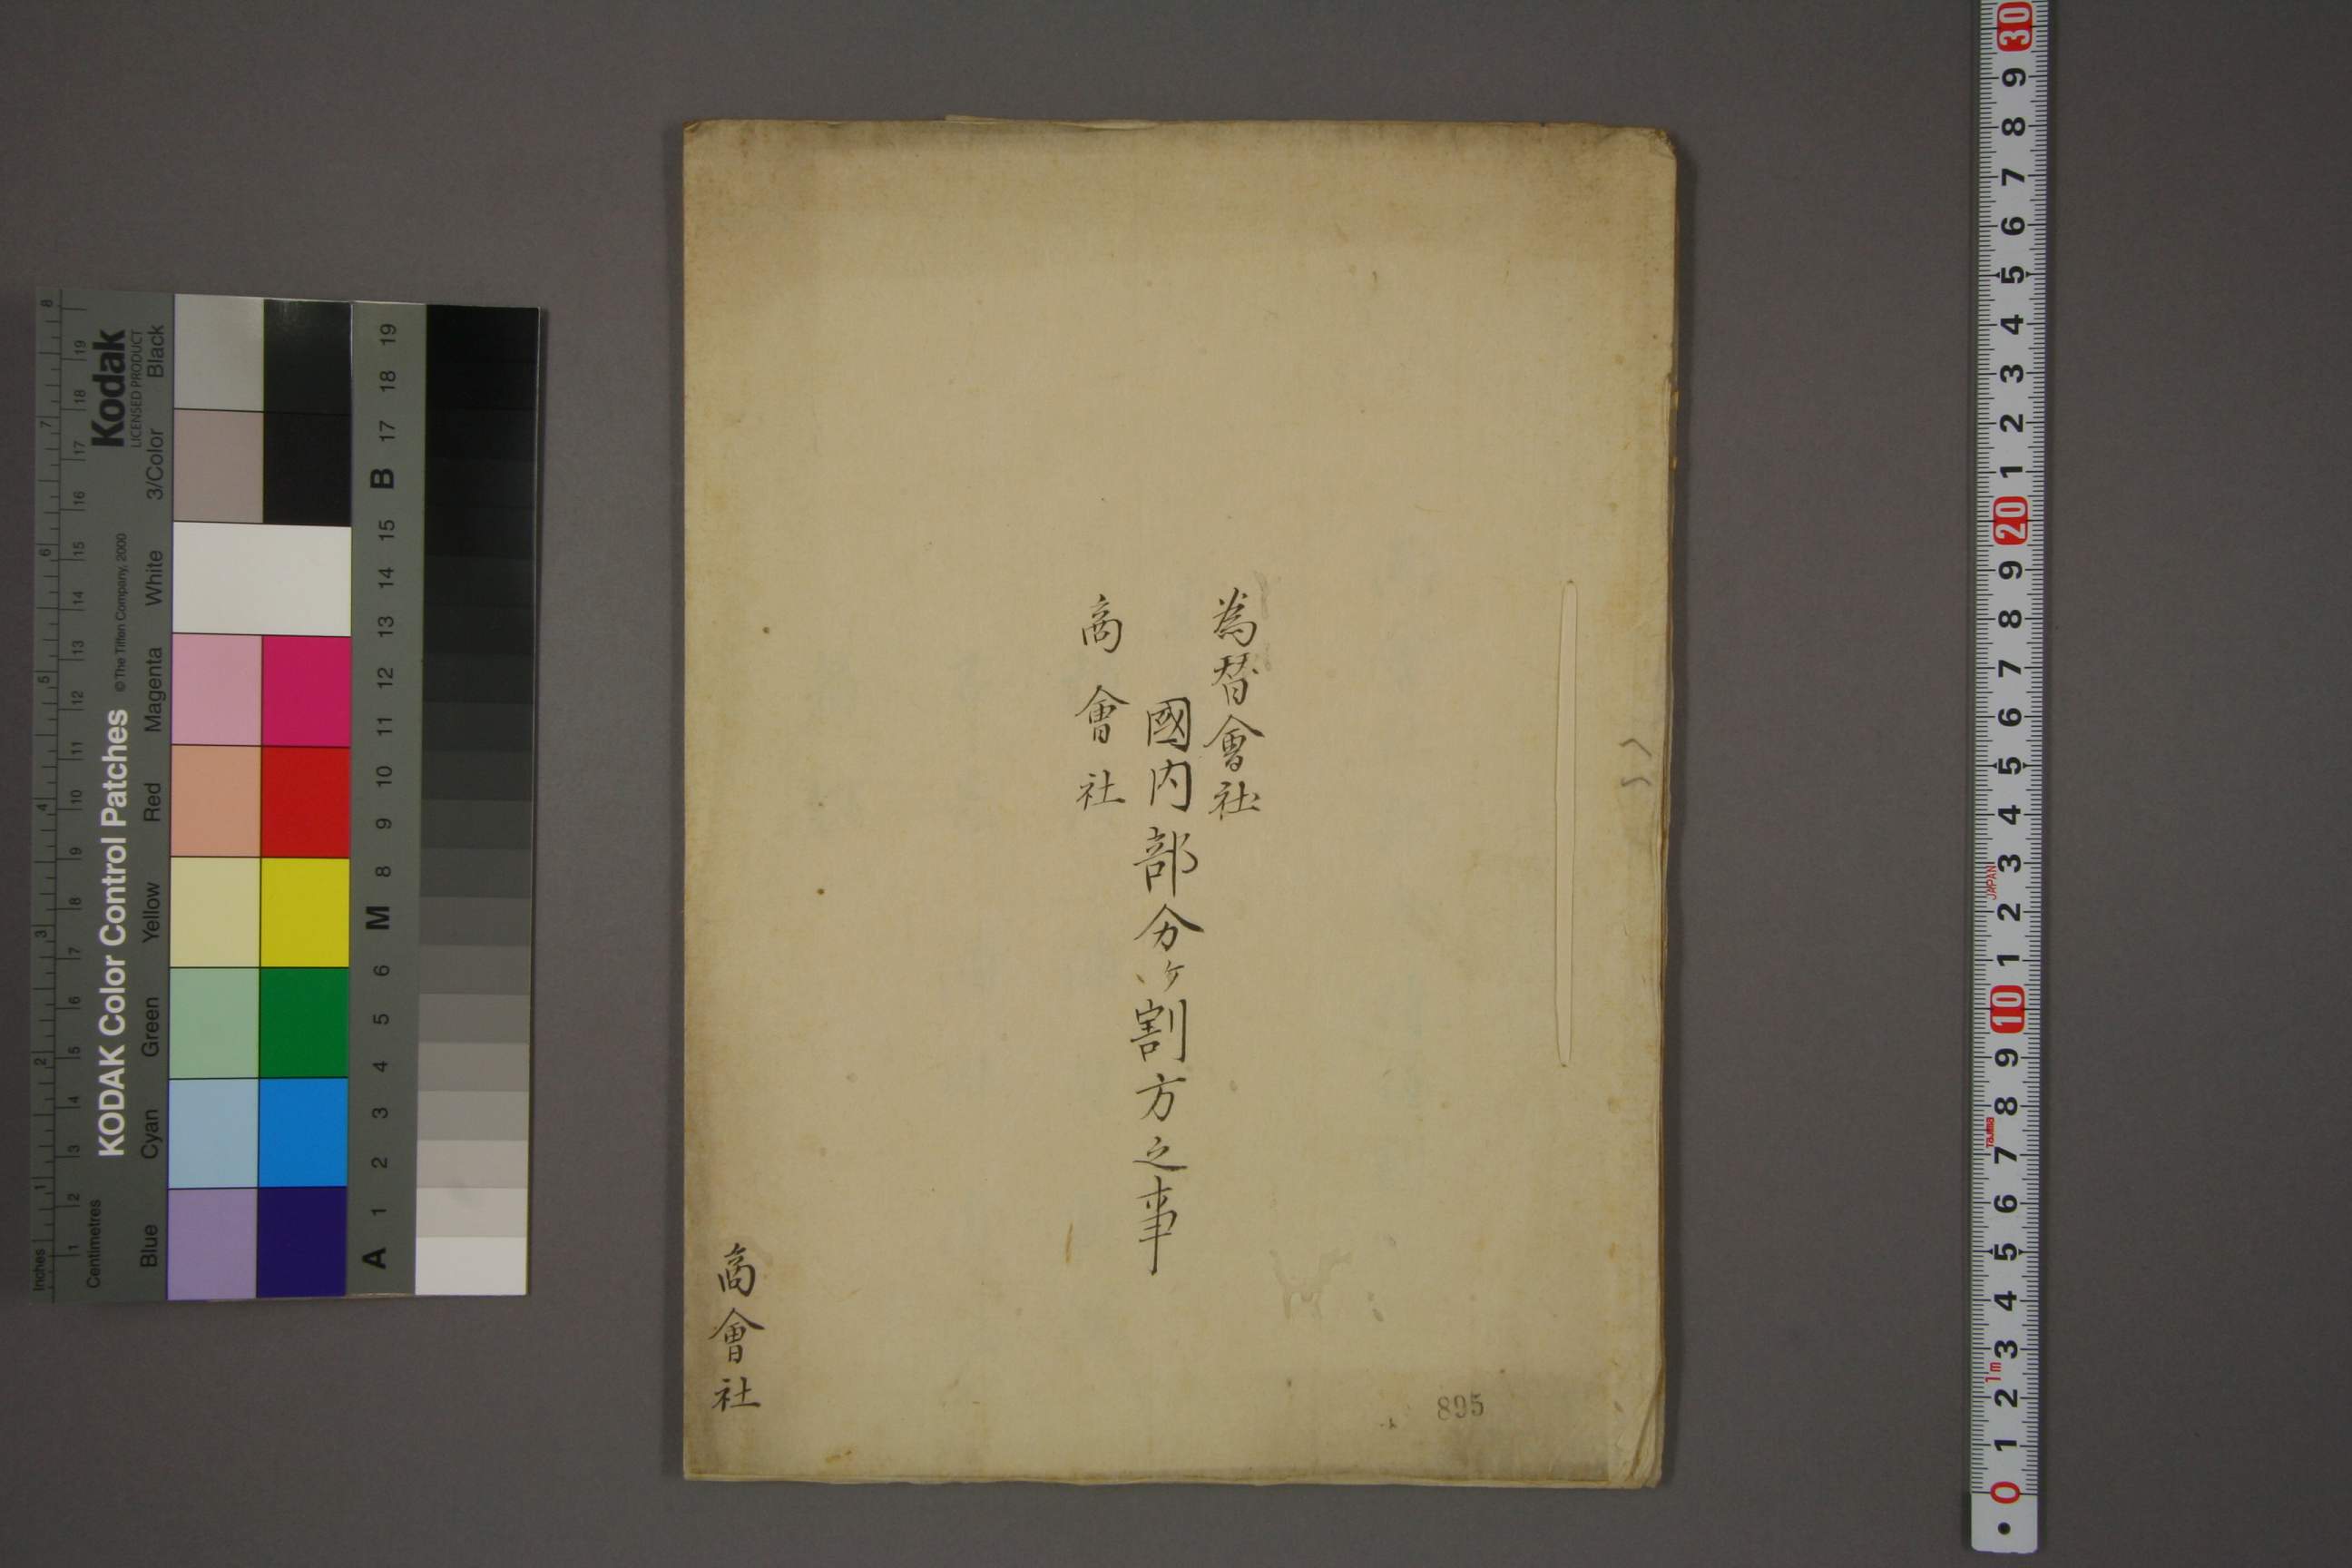 為替會社
國内部分ヶ割方之事
商會社
商會社
895
Kodak
LICENSED PRODUCT
KODAK Color Control Patches
© The Tiffen Company, 2000
Blue Cyan Green Yellow Red Magenta White 3/Color Black
Inches 1 2 3 4 5 6 7 8
Centimetres 1 2 3 4 5 6 7 8 9 10 11 12 13 14 15 16 17 18 19
A 1 2 3 4 5 6 M 8 9 10 11 12 13 14 15 B 17 18 19
0 1 2 3 4 5 6 7 8 9 10 1 2 3 4 5 6 7 8 9 20 1 2 3 4 5 6 7 8 9 30
1m
Tajima
JAPAN